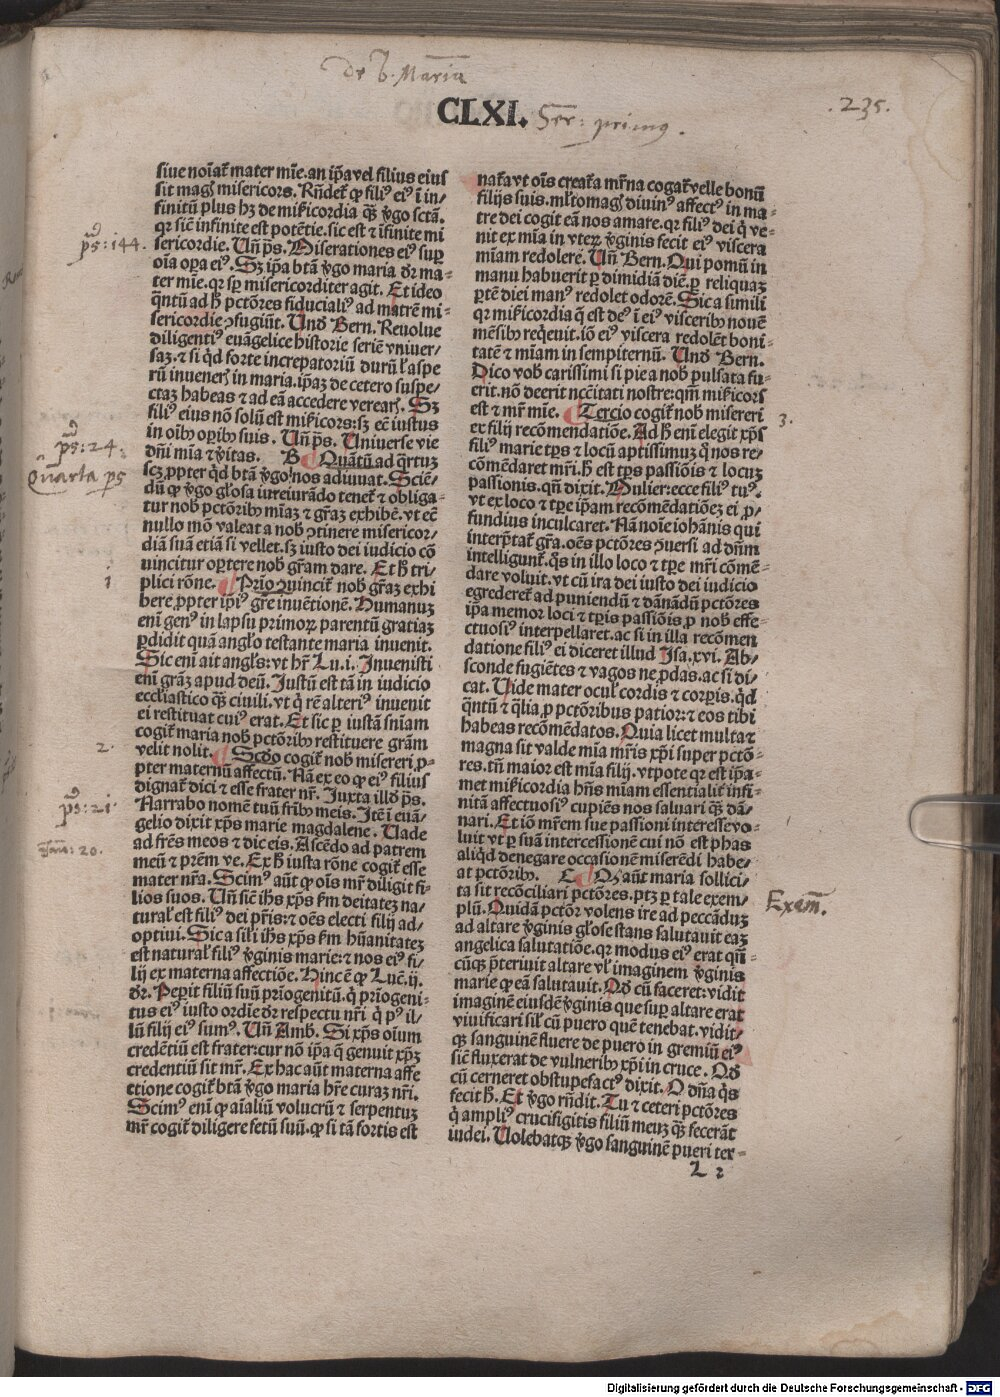 De b. Maria
CLXI. Ser: primus.
.235.
siue noĩat̃ mater mĩe. an ip̃a vel filius eius
sit magꝭ misericors. Rñdet̃ ꝙ filiꝰ eiꝰ ĩ in/
finitũ plus hꝫ de mĩkicordia qꝫ ṽgo sctã.
qꝛ sicẽ infinite est potẽtie. sic est ⁊ ĩfinite mi
sericordie. Vñ p̃s. Miserationes eiꝰ suꝑ
oĩa oꝑa eiꝰ. Sꝫ ip̃a btã ṽgo maria dr̃ ma-
ter mie. qꝛ sꝑ misericorditer agit. Et ideo
qñtũ ad h̃ pctõres fiduciali⁹ ad matrẽ mi-
sericordie ↄfugiũt. Vnd̃ Bern. Reuolue
diligentiꝰ euãgelice historie seriẽ vniuer/
saꝫ. ⁊ si qd̃ forte increpatoriũ durũ ł aspe
rũ inueneris in maria. ip̃aꝫ de cetero suspe/
ctaꝫ habeas ⁊ ad eã accedere verearꝭ. Sꝫ
filiꝰ eius nõ solũ est mĩkicors: sꝫ ec̃ iustus
in oĩbꝰ oꝑibꝰ suis. Vñ p̃s. Vniuerse vie
dñi mĩa ⁊ ṽitas. B Quãtũ ad q̃rtuꝫ
scꝫ ꝓpter qd̃ btã ṽgo nos adiuuat. Sciẽ/
dũ ꝙ ṽgo gl̃osa iureiurãdo tenet̃ ⁊ obliga-
tur nob̃ pctõribꝰ mĩaꝫ ⁊ gr̃aꝫ exhibẽ. vt ec̃
nullo mõ valeat a nob̃ ↄtinere misericor/
diã suã etiã si vellet. sꝫ iusto dei iudicio cõ
uincitur oꝑtere nob̃ gr̃am dare. Et h̃ tri/
plici rõne. Prĩo ↄuincit̃ nob̃ gr̃aꝫ exhi
bere ꝓpter ip̃iꝰ gr̃e inuẽtionẽ. Humanuꝫ
em̃ genꝰ in lapsu primoꝝ parentũ gratiaꝫ
ꝑdidit quã angl̃o testante maria inuenit.
Sic em̃ ait angl̃s: vt hr̃ Lu. i. Inuenisti
em̃ gr̃aꝫ apud deũ. Iustũ est tñ in iudicio
eccl̃iastico qꝫ ciuili. vt q̃ rẽ alteriꝰ inuenit
ei restituat cuiꝰ erat. Et sic ꝑ iustã sñiam
cogit̃ maria nob̃ pctõribꝰ restituere gr̃am
velit nolit. Scdõ cogit̃ nob̃ misereri ꝓ-
pter maternũ affectũ. Nã ex eo ꝙ eiꝰ filius
dignat̃ dici ⁊ esse frater nr̃. Iuxta illd̃ p̃s.
Narrabo nomẽ tuũ fr̃ibꝰ meis. Itẽ ĩ euã/
gelio dixit xp̃s marie magdalene. Vade
ad fr̃es meos ⁊ dic eis. Ascẽdo ad patrem
meũ ⁊ pr̃em ve. Ex h̃ iusta rõne cogit̃ esse
mater nr̃a. Scimꝰ aũt ꝙ oĩs mr̃ diligit fi-
lios suos. Vñ sicẽ ihs xp̃s km̃ deitateꝫ na-
tural̃ est filiꝰ dei pr̃is: ⁊ oẽs electi filij ad/
optiui. Sic a sili ihs xp̃s km̃ hũanitateꝫ
est natural̃ filiꝰ ṽginis marie: ⁊ nos eiꝰ fi-
lij ex materna affectiõe. Hinc ẽ ꝙ Luc̃. ij.
dr̃. Peꝑit filiũ suũ prĩogenitũ. q̃ prĩogeni-
tus eiꝰ iusto ordĩe dr̃ respectu nr̃i q̃ pꝰ il/
lũ filij eiꝰ sumꝰ. Vñ Amb. Si xp̃s oĩum
credẽtiũ est frater: cur nõ ip̃a q̃ genuit xp̃ꝫ
credentiũ sit mr̃. Ex hac aũt materna affe
ctione cogit̃ btã ṽgo maria hr̃e curaꝫ nr̃i.
Scimꝰ em̃ ꝙ aĩaliũ volucrũ ⁊ serpentuꝫ
mr̃ cogit̃ diligere fetũ suũ. ꝙ si tã fortis est
nat̃a vt oĩs creat̃a mr̃na cogat̃ velle bonũ
filijs suis. ml̃tomagꝭ diuinꝰ affectꝰ in ma-
tre dei cogit eã nos amare. qꝛ filiꝰ dei q̃ ve-
nit ex mĩa in vteꝝ ṽginis fecit eiꝰ viscera
mĩam redolere. Vñ Bern. Qui pomũ in
manu habuerit ꝑ dimidiã diẽ. ꝑ reliquaꝫ
ꝑtẽ diei manꝰ redolet odorẽ. Sic a simili
qꝛ mĩkicordia q̃ est deꝰ ĩ eiꝰ visceribꝰ nouẽ
mẽsibꝰ req̃euit. iõ eiꝰ viscera redolẽt boni-
tatẽ ⁊ mĩam in sempiternũ. Vnd̃ Bern.
Dico vob̃ carissimi si pie a nob̃ pulsata fu-
erit. nõ deerit nec̃citati nostre: qm̃ mĩkicors
est ⁊ mr̃ mĩe. Tercio cogit̃ nob̃ misereri
ex filij recõmendatiõe. Ad h̃ em̃ elegit xp̃s
filiꝰ marie tp̃s ⁊ locũ aptissimuꝫ q̃ nos re-
cõmẽdaret mr̃i. h̃ est tp̃s passiõis ⁊ locuz
passionis. qñ dixit. Mulier: ecce filiꝰ tuꝰ.
vt ex loco ⁊ tp̃e ip̃am recõmẽdatiõeꝫ ei ꝓ/
fundius inculcaret. Nã noĩe iohãnis qui
interp̃tat̃ gr̃a. oẽs pctõres ↄuersi ad dñm
intelligunt̃. q̃s in illo loco ⁊ tp̃e mr̃i cõmẽ-
dare voluit. vt cũ ira dei iusto dei iudicio
egrederet̃ ad puniendũ ⁊ dãnãdũ pctõres
ip̃a memor loci ⁊ tp̃is passiõis ꝓ nob̃ effe-
ctuosiꝰ interpellaret. ac si in illa recõmen
datione filiꝰ ei diceret illud Isa. xvi. Ab/
sconde fugiẽtes ⁊ vagos ne ꝓdas. ac si di-
cat. Vide mater ocul̃ cordis ⁊ corꝑis. qd̃
qñtũ ⁊ q̃lia ꝓ pctõribus patior: ⁊ eos tibi
habeas recõmẽdatos. Quia licet multa ⁊
magna sit valde mĩa mr̃is xp̃i super pctõ-
res. tñ maior est mĩa filij. vtpote qꝛ est ip̃a-
met mĩkicordia hñs mĩam essentialit̃ infi-
nitã affectuosiꝰ cupiẽs nos saluari qꝫ dã/
nari. Et iõ mr̃em sue passioni interesse vo-
luit vt ꝑ suã intercessionẽ cui nõ est phas
aliqd̃ denegare occasionẽ miserẽdi habe-
at pctõribꝰ. C Qꝫ aũt maria sollici/
ta sit recõciliari pctõres. ptꝫ ꝑ tale exem/
plũ. Quidã pctõr volens ire ad peccãduꝫ
ad altare ṽginis gl̃ose stans salutauit eaꝫ
angelica salutatiõe. qꝛ modus eiꝰ erat qñ-
cũqꝫ p̃teriuit altare vl̃ imaginem ṽginis
marie ꝙ eã salutauit. Qd̃ cũ faceret: vidit
imaginẽ eiusdẽ ṽginis que suꝑ altare erat
viuificari sil̃ cũ puero quẽ tenebat. vidit/
qꝫ sanguinẽ fluere de puero in gremiũ eiꝰ
sicẽ fluxerat de vulneribꝰ xp̃i in cruce. Qd̃
cũ cerneret obstupefactꝰ dixit. O dña q̃s
fecit h̃. Et ṽgo rñdit. Tu ⁊ ceteri pctõres
q̃ ampliꝰ crucifigitis filiũ meuꝫ qꝫ fecerãt
iudei. Volebatqꝫ ṽgo sanguinẽ pueri ter-
L 2
ps: 144.
ps: 24.
Quarta ps
1
2.
ps: 21
Joan: 20.
3.
Exem.
Digitalisierung gefördert durch die Deutsche Forschungsgemeinschaft - DFG